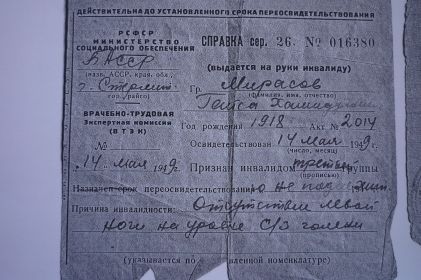 ДЕЙСТВИТЕЛЬНА ДО УСТАНОВЛЕННОГО СРОКА ПЕРЕОСВИДЕТЕЛЬСТВОВАНИЯ
РСФСР
МИНИСТЕРСТВО
СОЦИАЛЬНОГО ОБЕСПЕЧЕНИЯ
БАССР
(назв. АССР, края, обл.,
г. Стерлит.
гор./райсо)
ВРАЧЕБНО-ТРУДОВАЯ
Экспертная комиссия
(ВТЭК)
№
"14" мая 1949г.
СПРАВКА сер. 26. № 016380
(выдается на руки инвалиду)
Гр. Мирасов
(фамилия, имя, отчество)
Год рождения 1918 Акт № 2014
Освидетельствован 14 мая 1949г.
(число, месяц)
Признан инвалидом третьей группы
(прописью)
Назначен срок переосвидетельствования не
Причина инвалидности: Отсутствие левой
ноги на уровне с/з голени
(указывается по установленной номенклатуре)